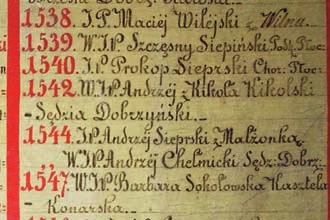 1538. I.P. Maciéj Wiléjski z Wilna._
1539. W.I.P. Szczęsny Siepiński Podś. Płoc:
1540. I.P. Prokop Sieprski Chor. Płoc:
1542. W.I.P. Andrzéj z Kikolz Kikolski
Sędzia Dobrzyński._
1544. I.P. Andrzéj Sieprski z Małżonką._
„ W.I.P. Andrzéj Chełmicki Sędz: Dobrz:
1547. W.I.P. Barbara Sokołowska Kasztela
Konarska._